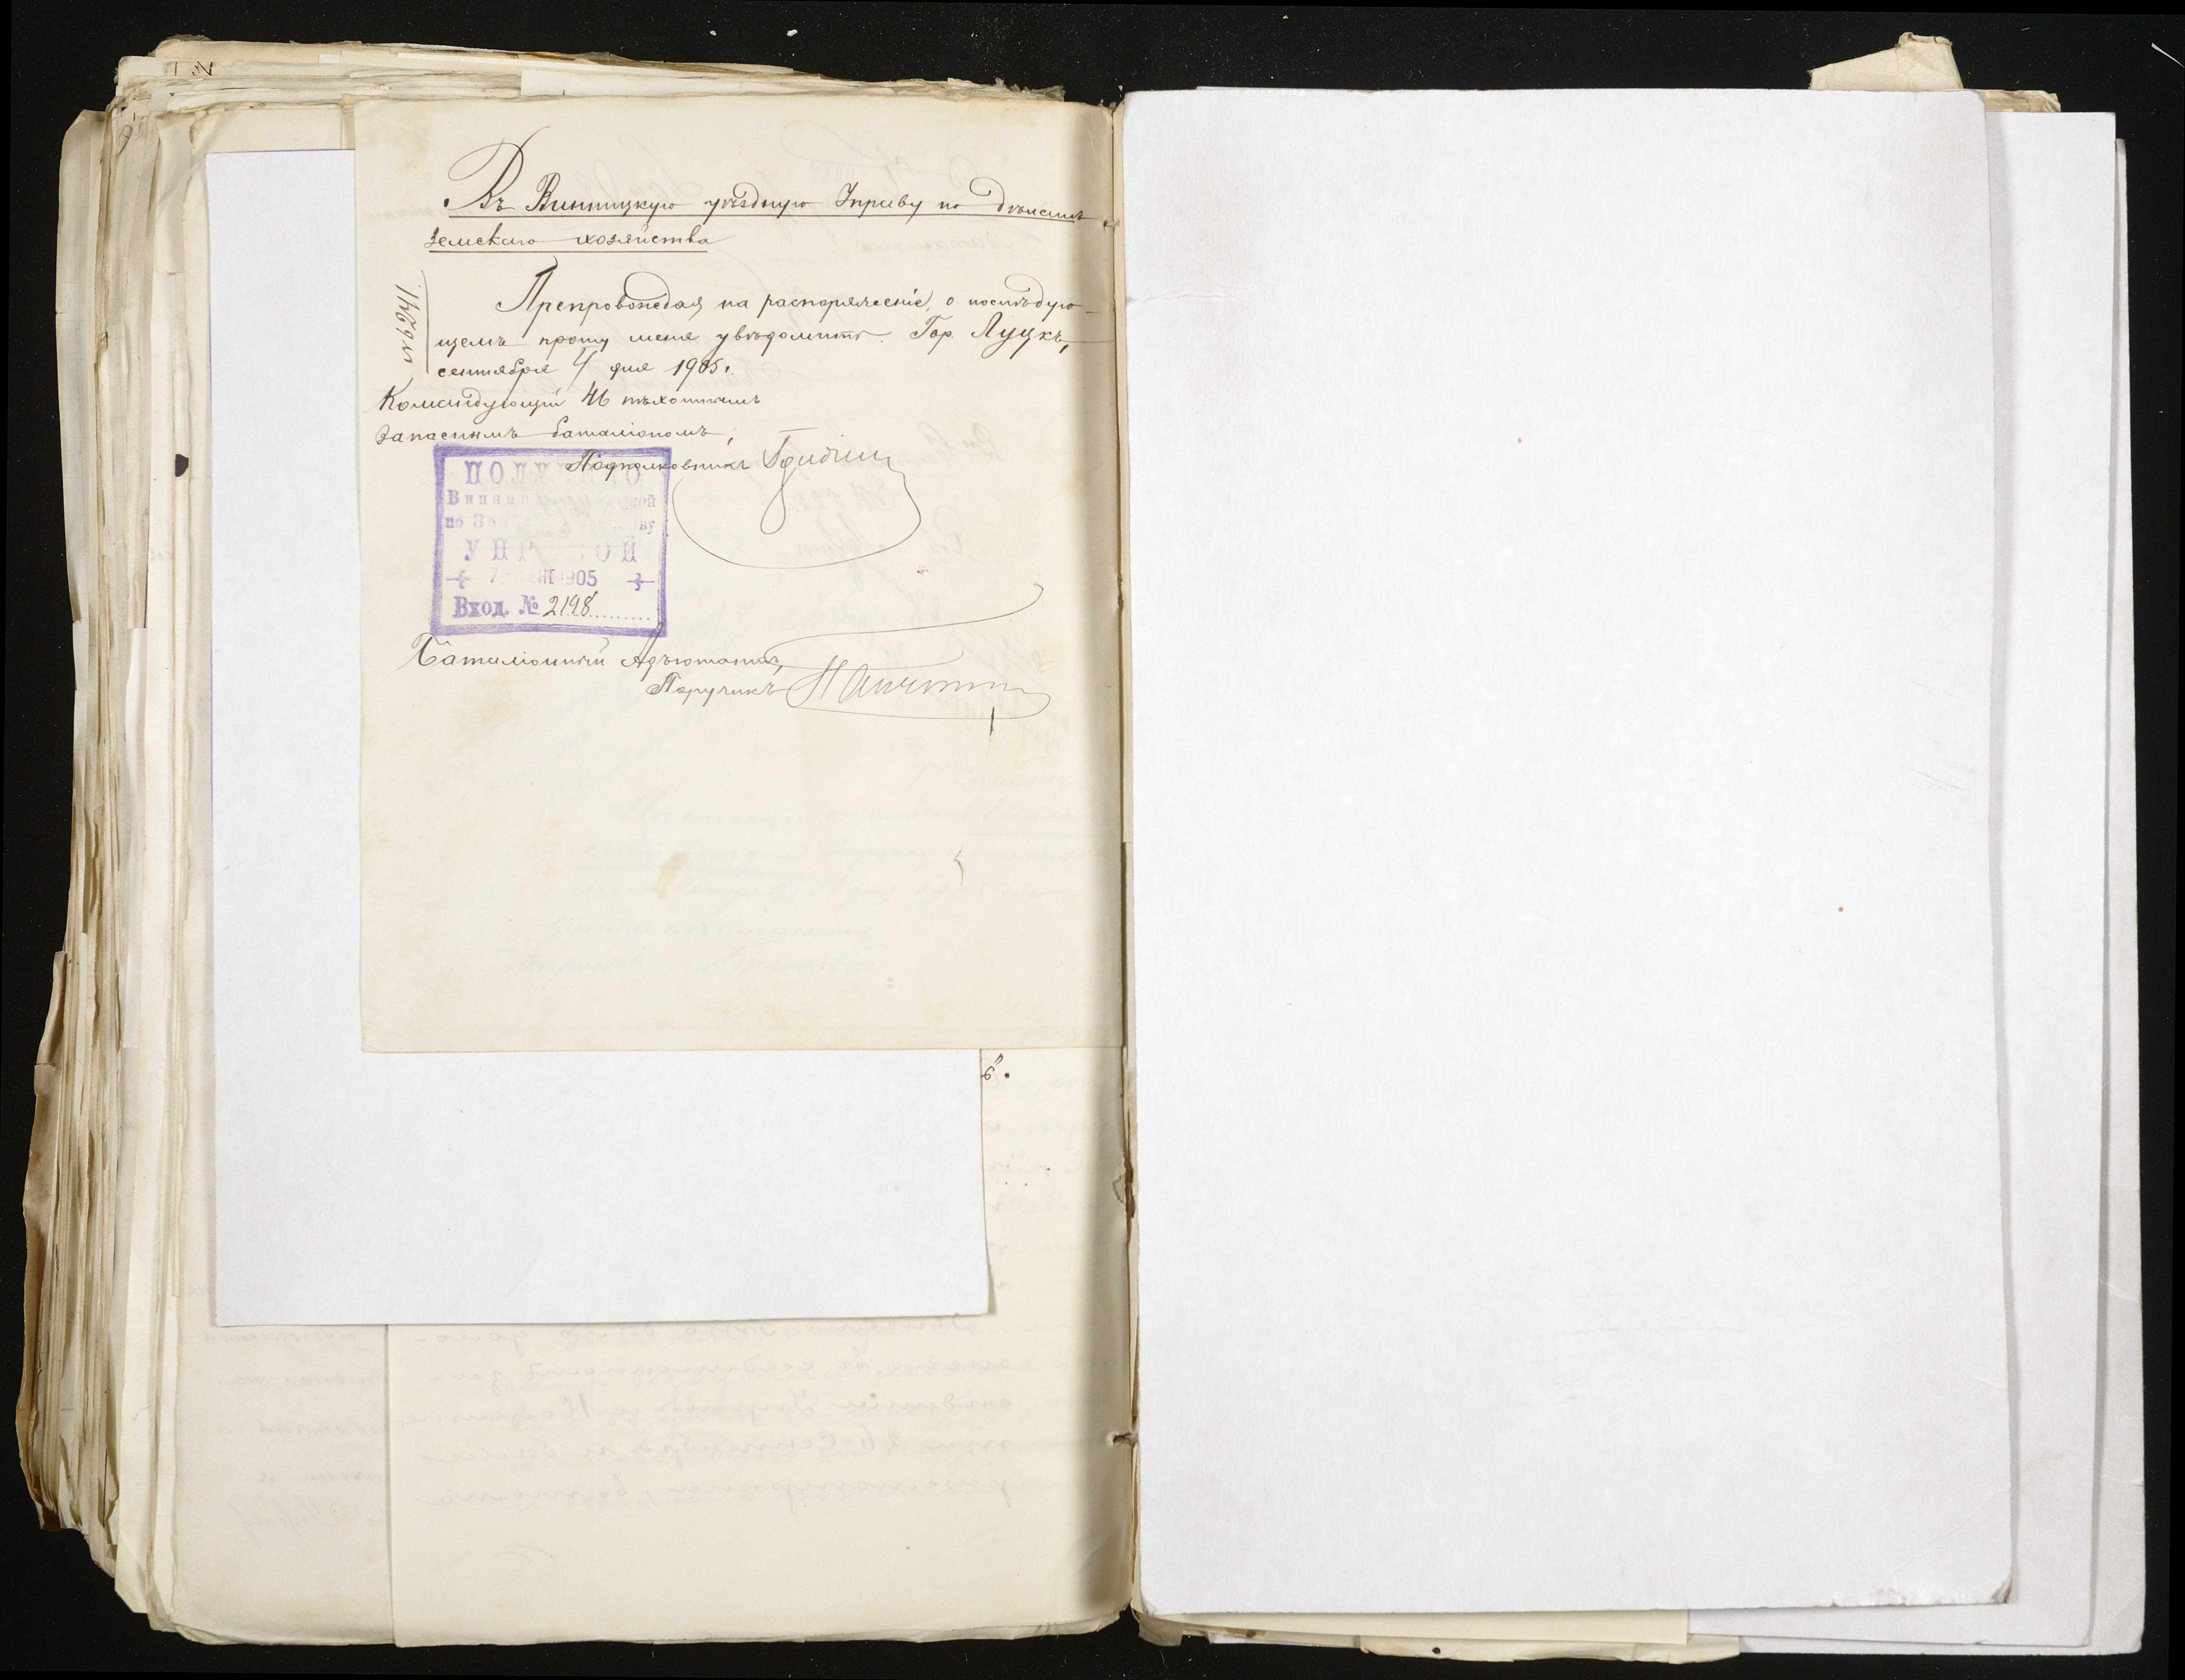 Въ Винницкую уѣздную Управу по дѣламъ
земскаго хозяйства
№6241.
Препровождая на распоряженіе, о послѣдую-
щемъ прошу меня увѣдомить. Гор. Луцкъ,
сентября 4 дня 1905 г.
Командующій 46 пѣхотнымъ
запаснымъ баталіономъ,
Подполковникъ
ПОЛУ О
Винни ной
по Зе ву
УПР ОЙ
7 СЕНТ 1905
Вход. № 2198
Баталіонный Адъютантъ,
Поручикъ